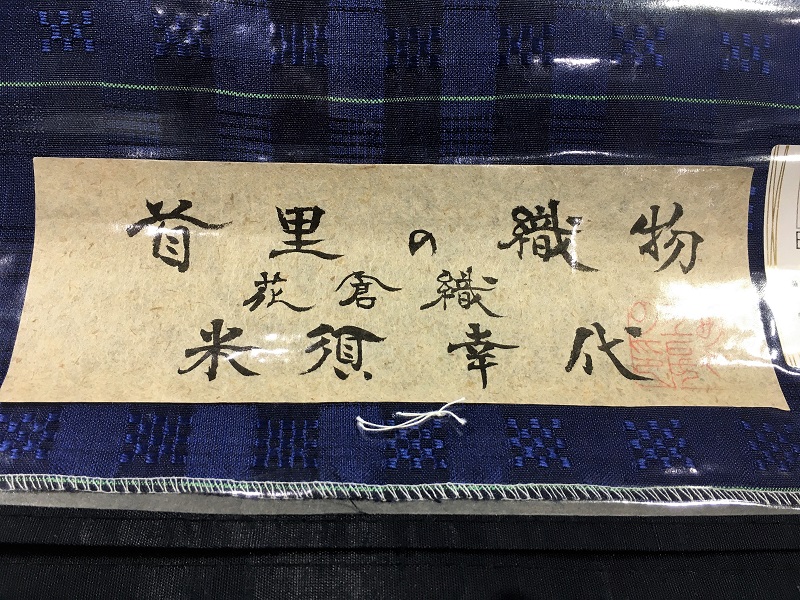 首里の織物
花倉織
米須幸代